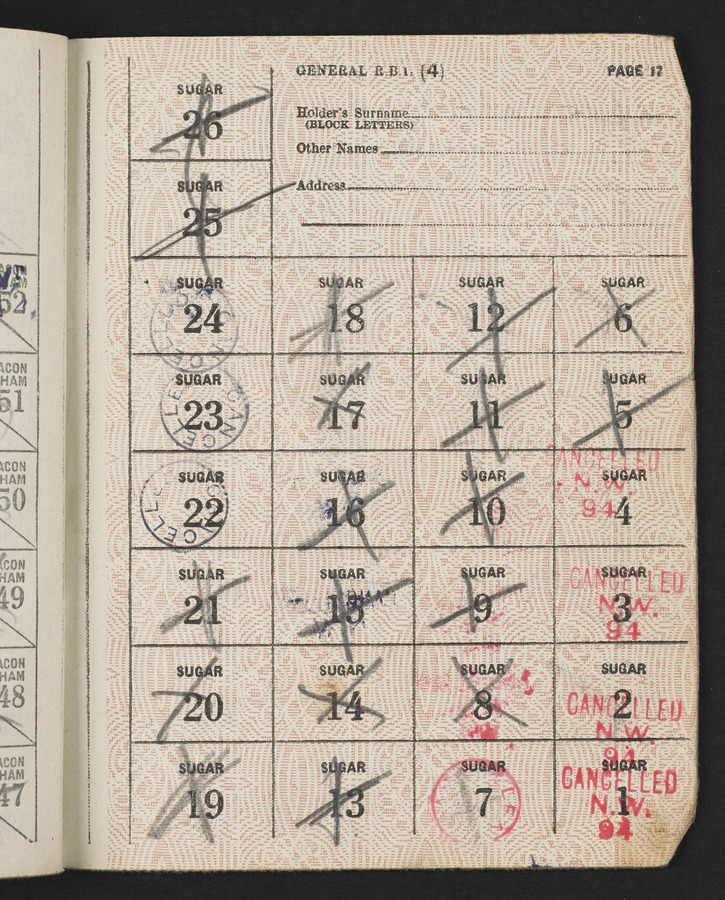 GENERAL R.B.1. (4) PAGE 17
Holder's Surname
(BLOCK LETTERS)
Other Names
Address
SUGAR
26
SUGAR
25
SUGAR SUGAR SUGAR SUGAR
24 18 12 6
SUGAR SUGAR SUGAR SUGAR
23 17 11 5
CANCELLED
N.W.
94
SUGAR SUGAR SUGAR SUGAR
22 16 10 4
CANCELLED
N.W.
94
SUGAR SUGAR SUGAR SUGAR
21 15 9 3
SUGAR SUGAR SUGAR SUGAR
20 14 8 2
CANCELLED
N.W.
94
SUGAR SUGAR SUGAR SUGAR
19 13 7 1
CANCELLED
N.W.
94
CANCELLED
CANCELLED
CELLE
52
ACON
HAM
51
ACON
HAM
50
CON
HAM
49
ACON
HAM
48
ACON
HAM
47